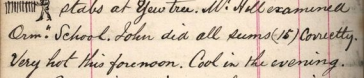 slabs at Yewtree. Mr. Hill examined
Orms. School. John did all sums (15) Correctly.
Very hot this forenoon. Cool in the evening.